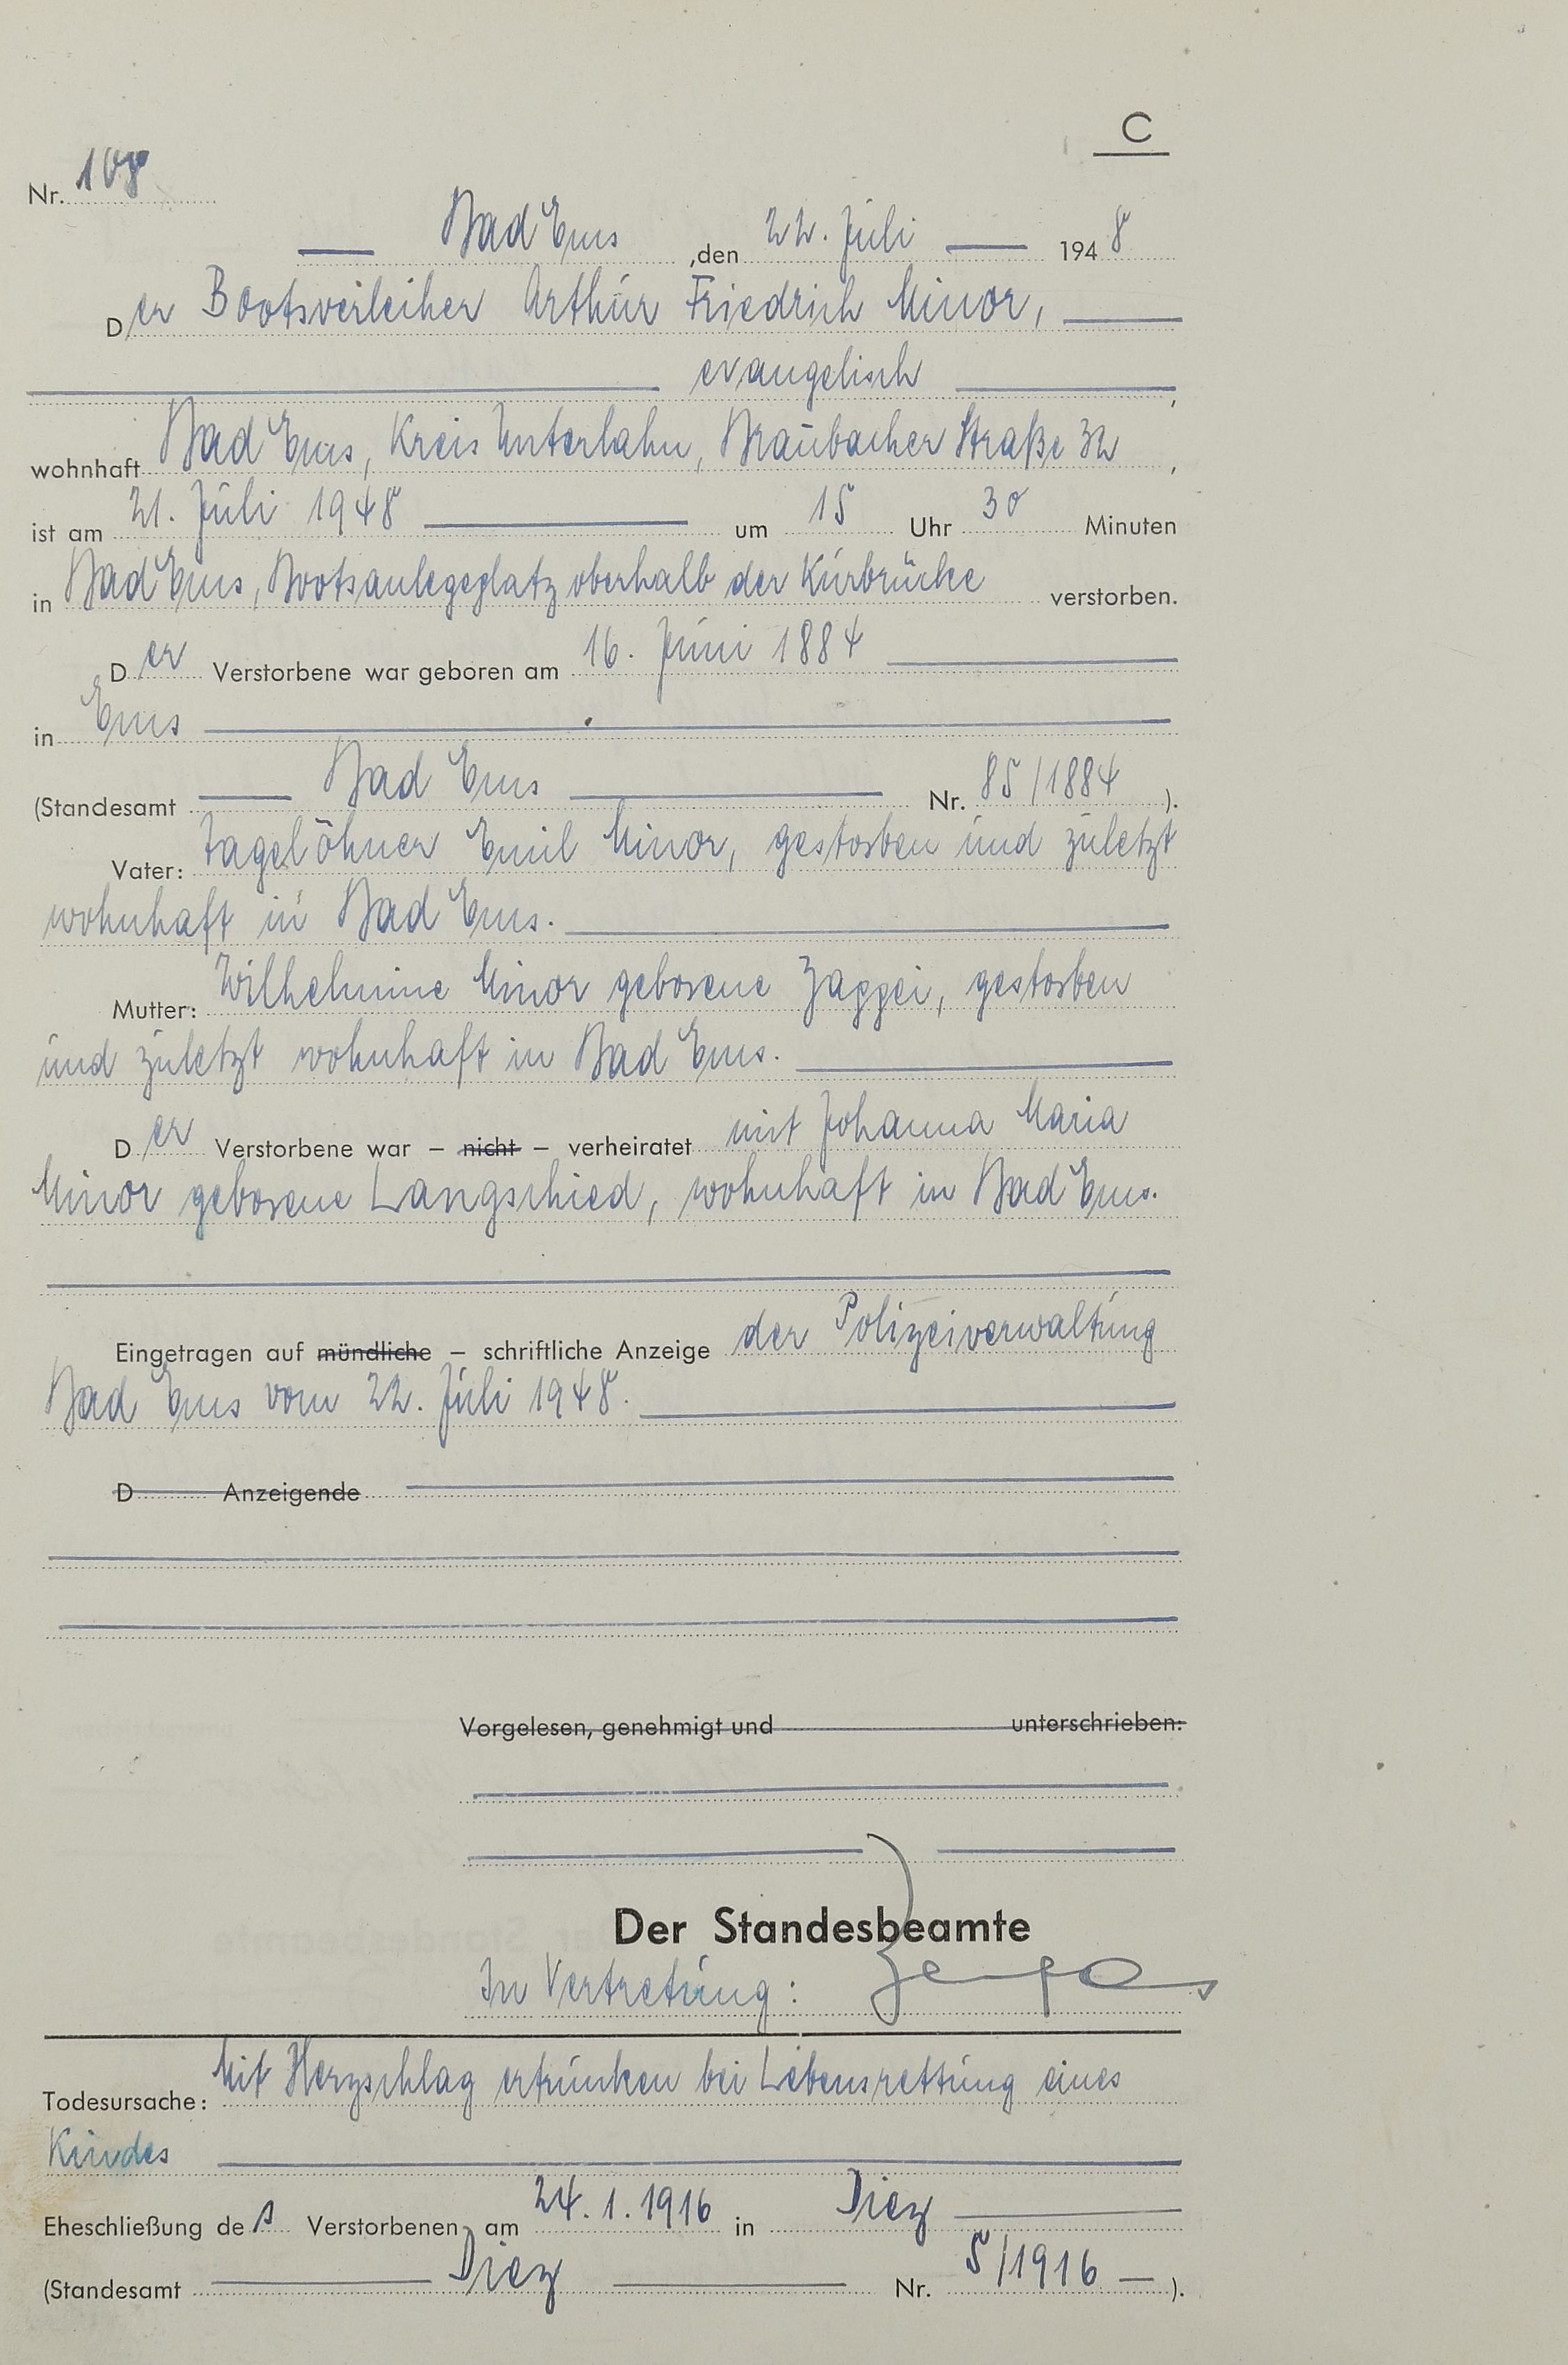 C
Nr. 108
Bad Ems, den 22. Juli 1948
Der Bootsverleiher Arthur Friedrich Minor,
evangelisch,
wohnhaft Bad Ems, Kreis Unterlahn, Braubacher Straße 32,
ist am 21. Juli 1948 um 15 Uhr 30 Minuten
in Bad Ems, Bootsanlegeplatz oberhalb der Kurbrücke verstorben.
Der Verstorbene war geboren am 16. Juni 1884
in Ems
(Standesamt Bad Ems Nr. 85/1884).
Vater: Tagelöhner Emil Minor, gestorben und zuletzt
wohnhaft in Bad Ems.
Mutter: Wilhelmine Minor geborene Zaggei, gestorben
und zuletzt wohnhaft in Bad Ems.
Der Verstorbene war – nicht – verheiratet mit Johanna Maria
Minor geborene Langschied, wohnhaft in Bad Ems.
Eingetragen auf mündliche – schriftliche Anzeige der Polizeiverwaltung
Bad Ems vom 22. Juli 1948.
D Anzeigende
Vorgelesen, genehmigt und unterschrieben:
Der Standesbeamte
In Vertretung:
Todesursache: Mit Herzschlag ertrunken bei Lebensrettung eines
Kindes
Eheschließung des Verstorbenen am 24.1.1916 in Diez
(Standesamt Diez Nr. 5/1916 ).